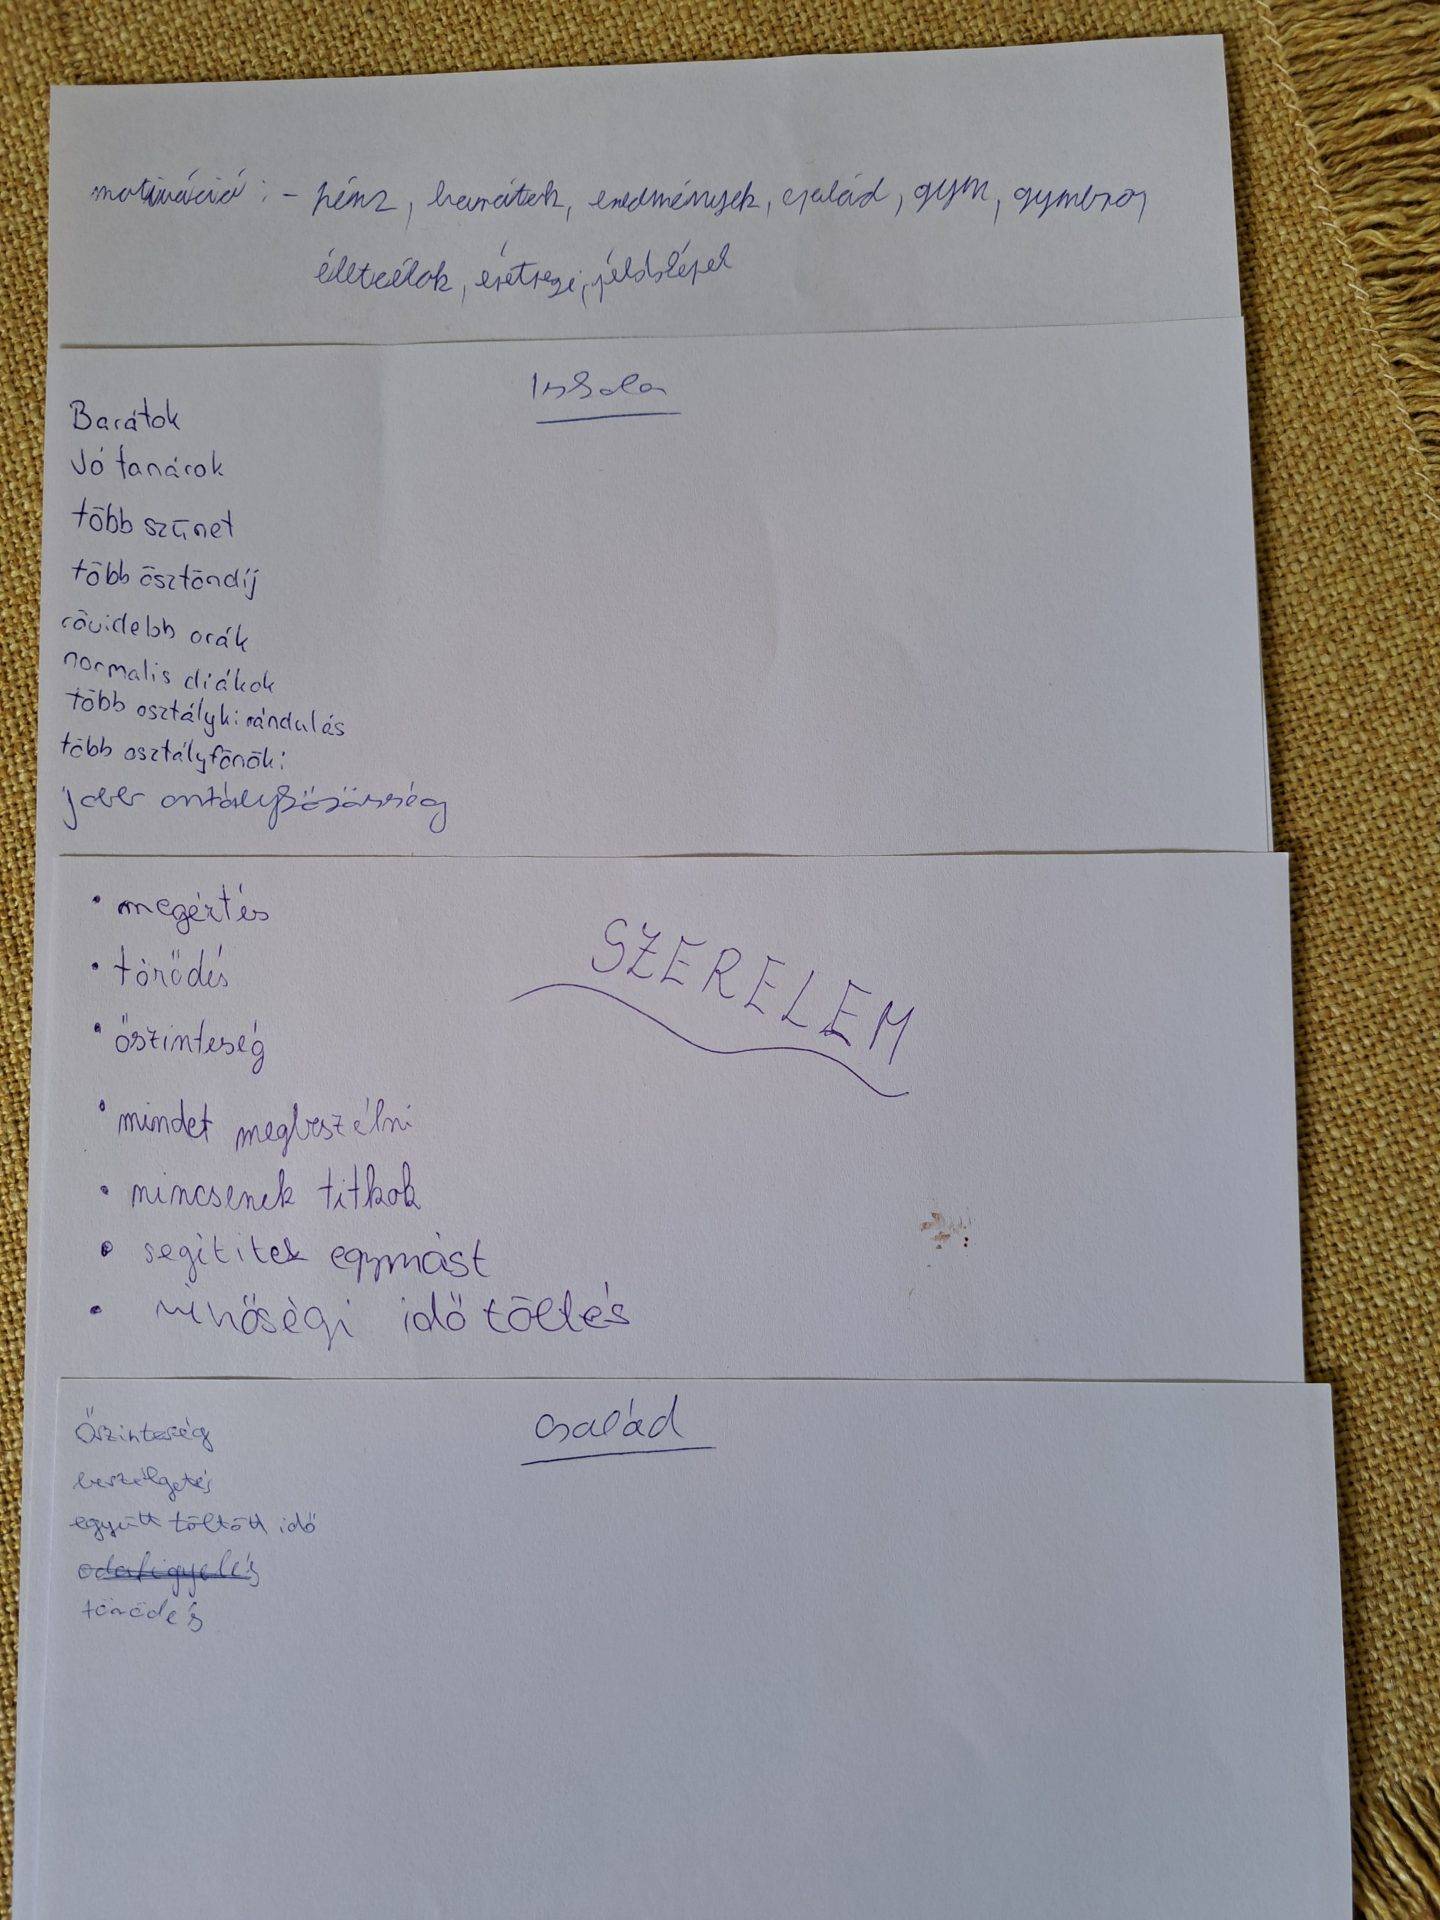 motiváció: - pénz, barátok, eredmények, család, gym, gymbro,
életcélok, érétsegi, példáképek
Iskola
Barátok
Jó tanárok
több szünet
több ösztöndíj
rövidebb orák
normalis diákok
több osztálykirándulás
több osztályfönöki
jobb osztályközösség
SZERELEM
• megértés
• törődés
• őszinteség
• mindet megbeszélni
• nincsenek titkok
• segititek egymást
• minőségi idő töltés
család
Őszinteség
beszélgetés
együtt töltött idő
odafigyelés
törödés